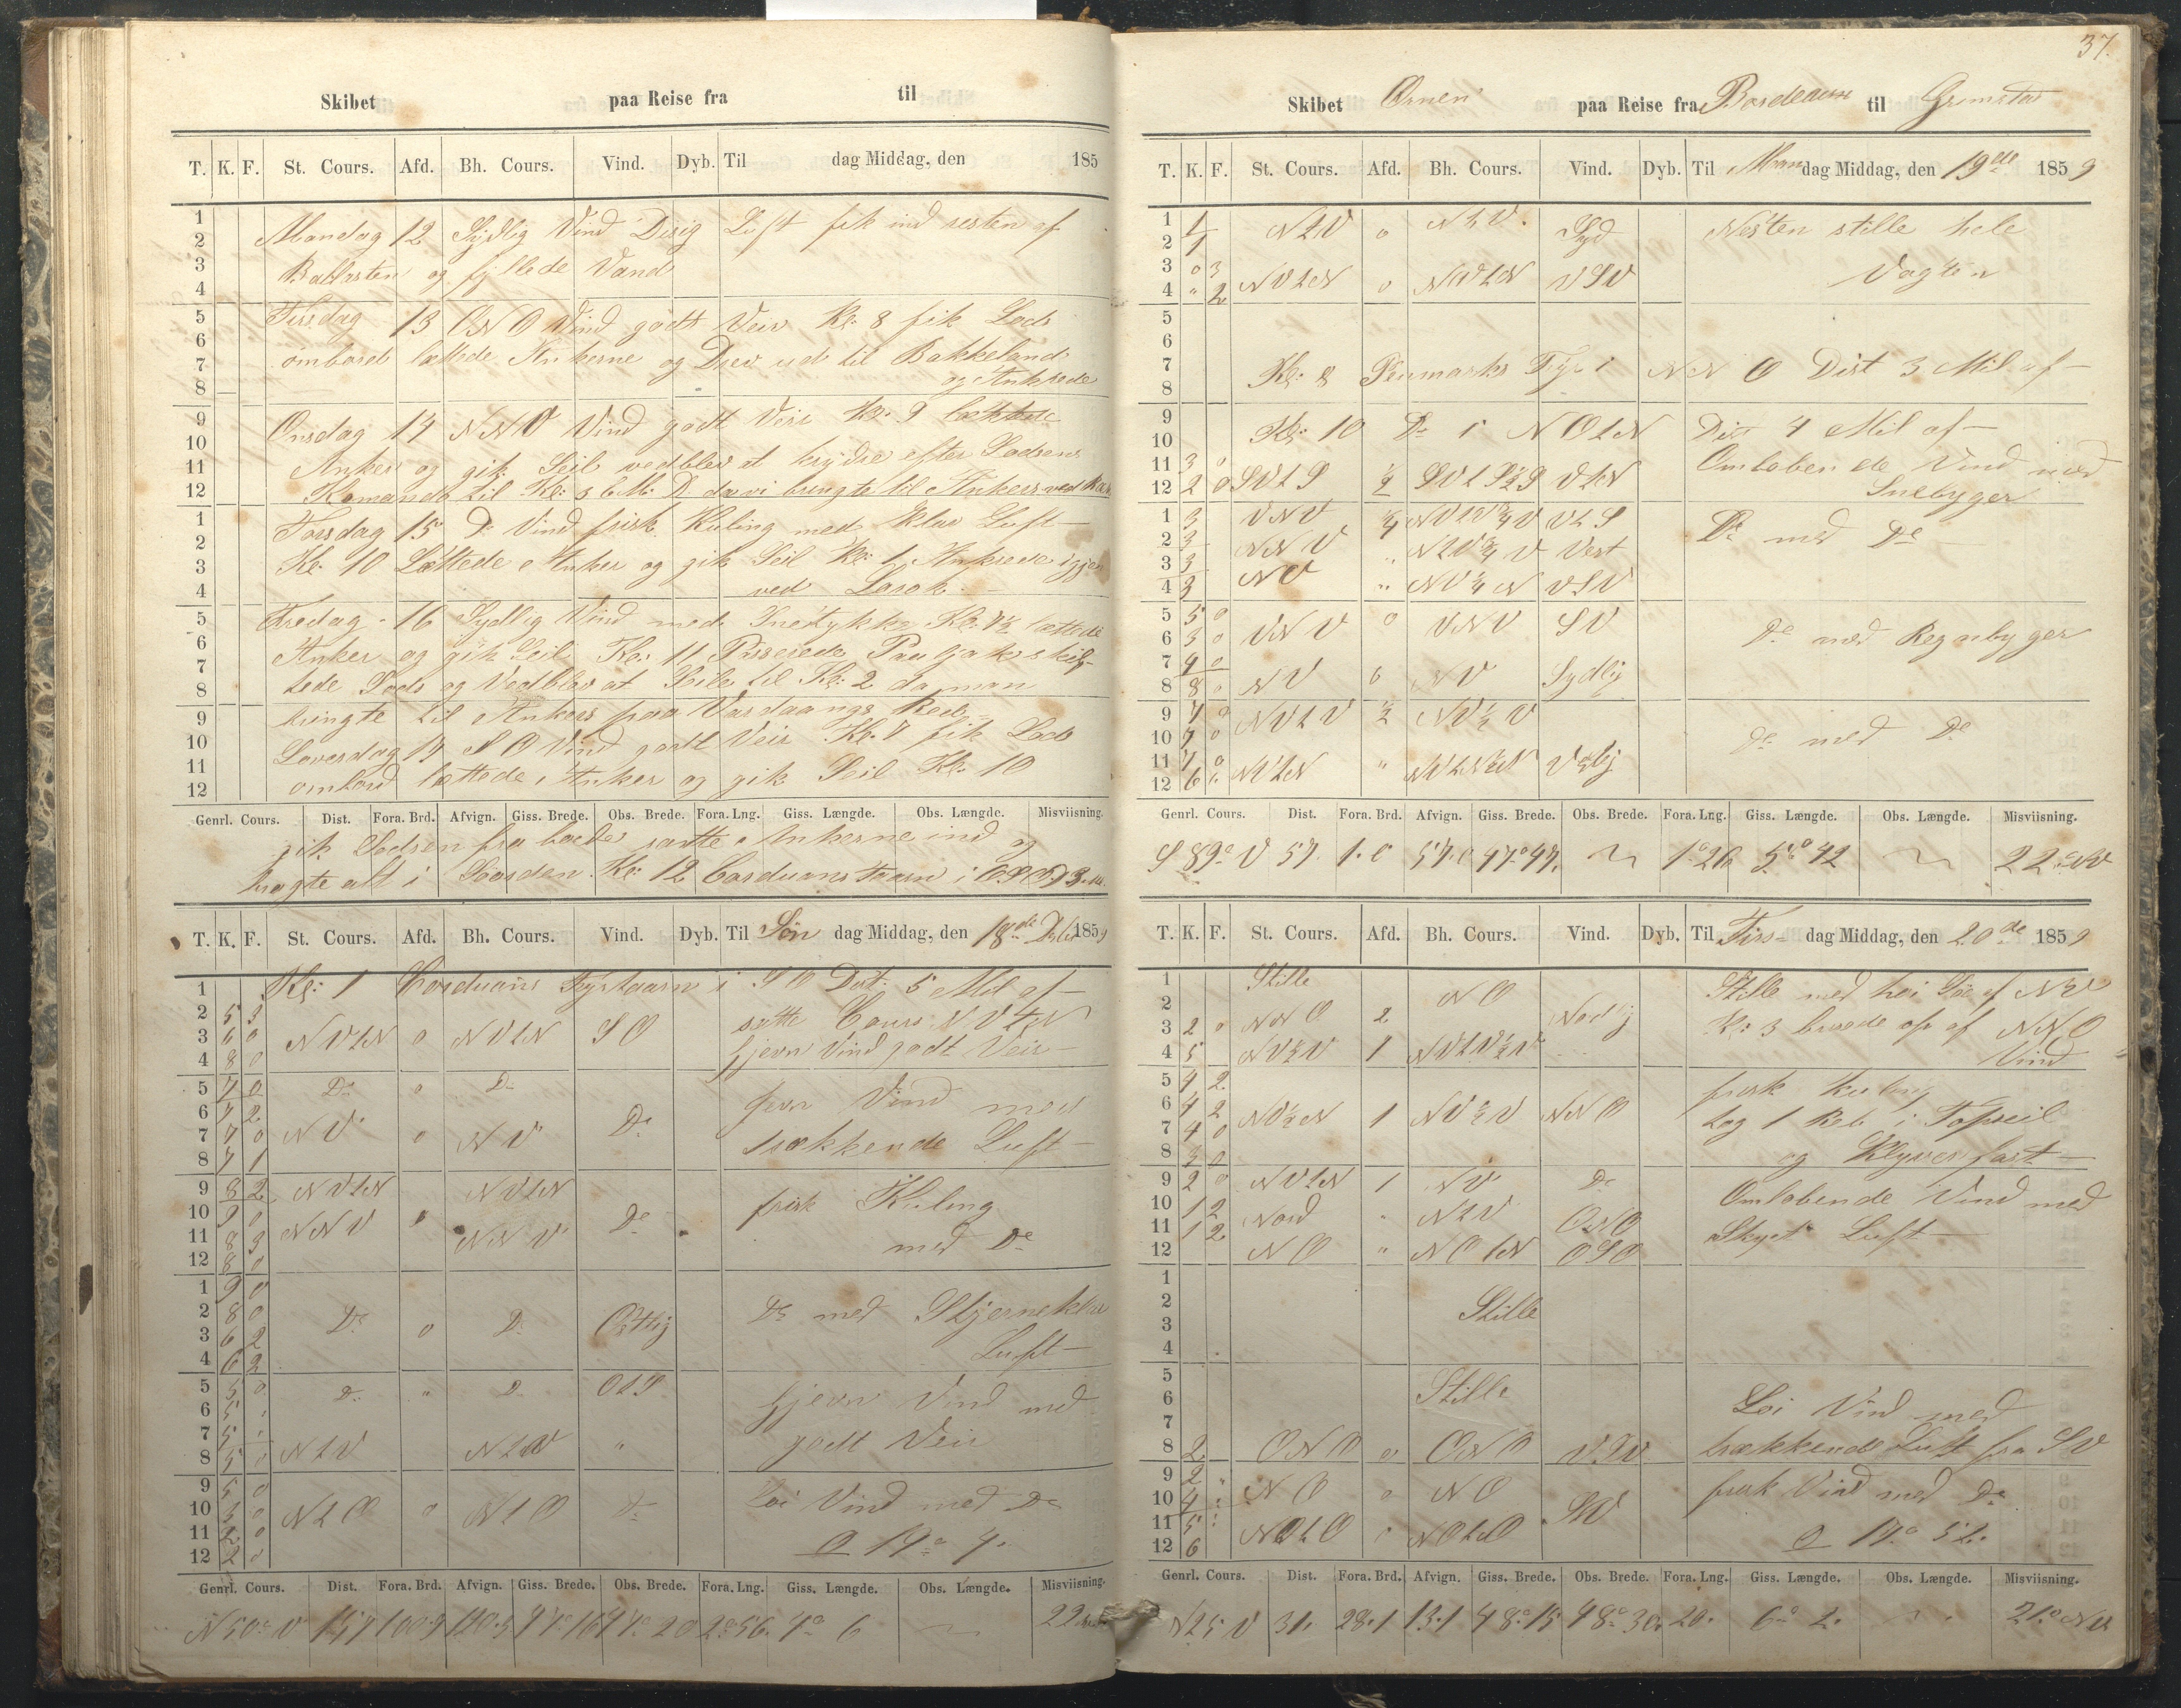 Skibet paa Reise fra til
T. K. F. St. Cours. Afd. Bh. Cours. Vind. Dyb. Til dag Middag, den 185
1
2 Mandag 12 Sydlig Vind Disig Luft fik ind resten af
3 Ballasten og fyllede Vand
4
5 Tirsdag 13 ONO Vind godt Veir Kl: 8 fik Lods
6 ombord lættede Ankerne og Drev ud til Bakkeland
7
8 og Ankrede
9 Onsdag 14 NNO Vind godt Veir Kl: 9 lættede
10
11 Anker og gik Seil vedblev at krydse efter Lodsens
12 Komando til Kl: da vi bragte til Ankers ved
1 Torsdag 15 Do Vind frisk Kuling med klar Luft
2
3 Kl: 10 Lættede Anker og gik Seil Kl: 1 Ankrede igjen
4 ved
5 Fredag 16 Sydlig Vind med Kl: lættede
6 Anker og gik Seil Kl: 11 Passerede skif-
7
8 tede Lods og Vedblev at Seile til Kl: 2 da man
9 bringte til Ankers paa Red
10 Løverdag 17 SO Vind godt Veir Kl: 7 fik Lods
11
12 ombord lættede Anker og gik Seil Kl: 10
Genrl. Cours. Dist. Fora. Brd. Afvign. Giss. Brede. Obs. Brede. Fora. Lng. Giss. Længde. Obs. Længde. Misviisning.
gik Lodsen fra borde satte Ankerne ind og
bragte alt i Kl: 12 Corduans Taarn i
T. K. F. St. Cours. Afd. Bh. Cours. Vind. Dyb. Til Søn dag Middag, den 18de 1859
1 Kl: 1 Corduans Fyrtaarn i SO Dist: 5 Mil af
2 5 3 satte Cours NVtN
3 6 0 NVtN 0 NVtN SO
4 8 0 Jevn Vind godt Veir
5 7 0 Do 0 Do
6 7 2 jevn Vind med
7 7 0 NV 0 NV Do
8 7 1 trækkende Luft
9 8 2 NVtN NVtN
10 9 0 frisk Kuling
11 8 3 NNV 0 NNV Do
12 8 0 med Do
1 9 0
2 8 0 Do 0 Do Ostlig Do med Stjerneklar
3 6 2
4 6 2 Luft
5 5 0 Do " Do OtS
6 5 jevn Vind med
7 5
8 5 0 NtV NtV " godt Veir
9 5 0
10 3 0 NtO 0 NtO Do Løi Vind med Do
11 2 0
12 2 0
Genrl. Cours. Dist. Fora. Brd. Afvign. Giss. Brede. Obs. Brede. Fora. Lng. Giss. Længde. Obs. Længde. Misviisning.
N50°V 157 100.9 120.3 47° 16 47° 20 2°56 4° 6 22
37.
Skibet Ørnen paa Reise fra Bordeaux til Grimstad
T. K. F. St. Cours. Afd. Bh. Cours. Vind. Dyb. Til Man dag Middag, den 19de 1859
1 1 NtV 0 NtV. Syd Nesten stille hele
2 1
3 0 3 Vagten
4 " 2 NVtN 0 NVtN VSV
5
6
7 Kl: 8 Penmarks Fyr i NNO Dist 3 Mil af
8
9
10 Kl: 10 Do i NOtN Dist 4 Mil af
11 3 0 Omløbende Vind med
12 2 0 SVtS ½ SVtS½S VtN Snebyger
1 3 VNV VtS
2 3 NNV Vest Do med Do
3 3
4 3 NV " NV¼N VSV
5 5 0
6 3 0 VNV 0 VNV SV Do med Regnbyger
7 4 0
8 8 0 NV 0 NV Sydlig
9 7 0 NVtV ½ NV½V
10 7 0 Do med Do
11 7 0
12 6 NVtN "
Genrl. Cours. Dist. Fora. Brd. Afvign. Giss. Brede. Obs. Brede. Fora. Lng. Giss. Længde. Obs. Længde. Misviisning.
S 89° V 57. 1.0 57.0 47°47. 1°26 5° 42 22° NV
T. K. F. St. Cours. Afd. Bh. Cours. Vind. Dyb. Til Tirs- dag Middag, den 20de 1859
1 Stille Stille med høi Søe af NV
2 NO
3 2 0 NNO 2 Nordlig Kl: 3 af NNO
4 5 NV½V 1 Vind
5 4 2 frisk Kuling
6 4 2
7 4 0 NV½N 1 NV½V NNO tog 1 Reb i Topseil
8 3 0 og Klyver fast
9 2 0 NVtN 1 NV Do Omløbende Vind med
10 1 2 Nord " NtV ONO
11 1 2 Skyet Luft
12 NO " NOtN OSO
1
2 Stille
3
4
5
6 Stille Løi Vind med
7
8 2 ONO 0 ONO VSV trækkende Luft fra SV
9 2 NO 0 NO frisk Vind med Do
10 4
11 5 NOtO 0 NOtO SV
12 6
Genrl. Cours. Dist. Fora. Brd. Afvign. Giss. Brede. Obs. Brede. Fora. Lng. Giss. Længde. Obs. Længde. Misviisning.
N25 V 31. 28.1 13.1 48°15 48°30 20. 6° 2. 21° NV